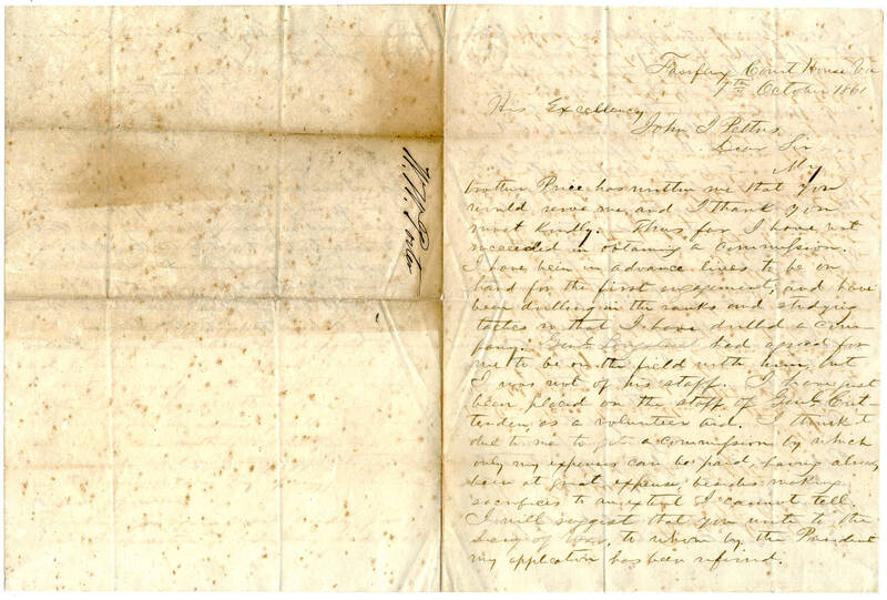 W. W. Porter
Fairfax Court House Va
7th October 1861
His Excellency
John J Pettus
Dear Sir
My
brother Price has written me that you
would serve me and I thank you
most kindly. Thus far I have not
succeeded in obtaining a commission.
I have been in advance lines to be on
hand for the first engagement, and have
been drilling in the ranks and studying
tactics so that I have drilled a com-
pany. Genl Longstreet had agreed for
me to be on the field with him, but
I was not of his staff. I have just
been placed on the staff of Genl Crit-
tenden, as a volunteer aid. I think it
due to me to get a commission by which
only my expenses can be paid, having already
been at great expense, besides making
sacrifices to an extent I cannot tell.
I will suggest that you write to the
Secy of War, to whom by the President
my application has been referred.